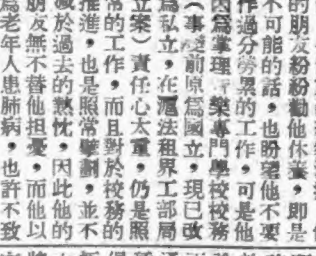 的朋友紛紛勸他休養，即是
不可能的話，也盼望他不要
作過分勞累的工作，可是他
因為掌理 樂專門學校校務
（事變前原為國立，現已改
為私立，在滬法租界工部局
立案）責任心太重，仍是照
常的工作，而且對於校務的
推進，也是照常擘劃，並不
減於過去的熱忱，因此他的
朋友無不替他担憂，而他以
為老年人患肺病，也許不致